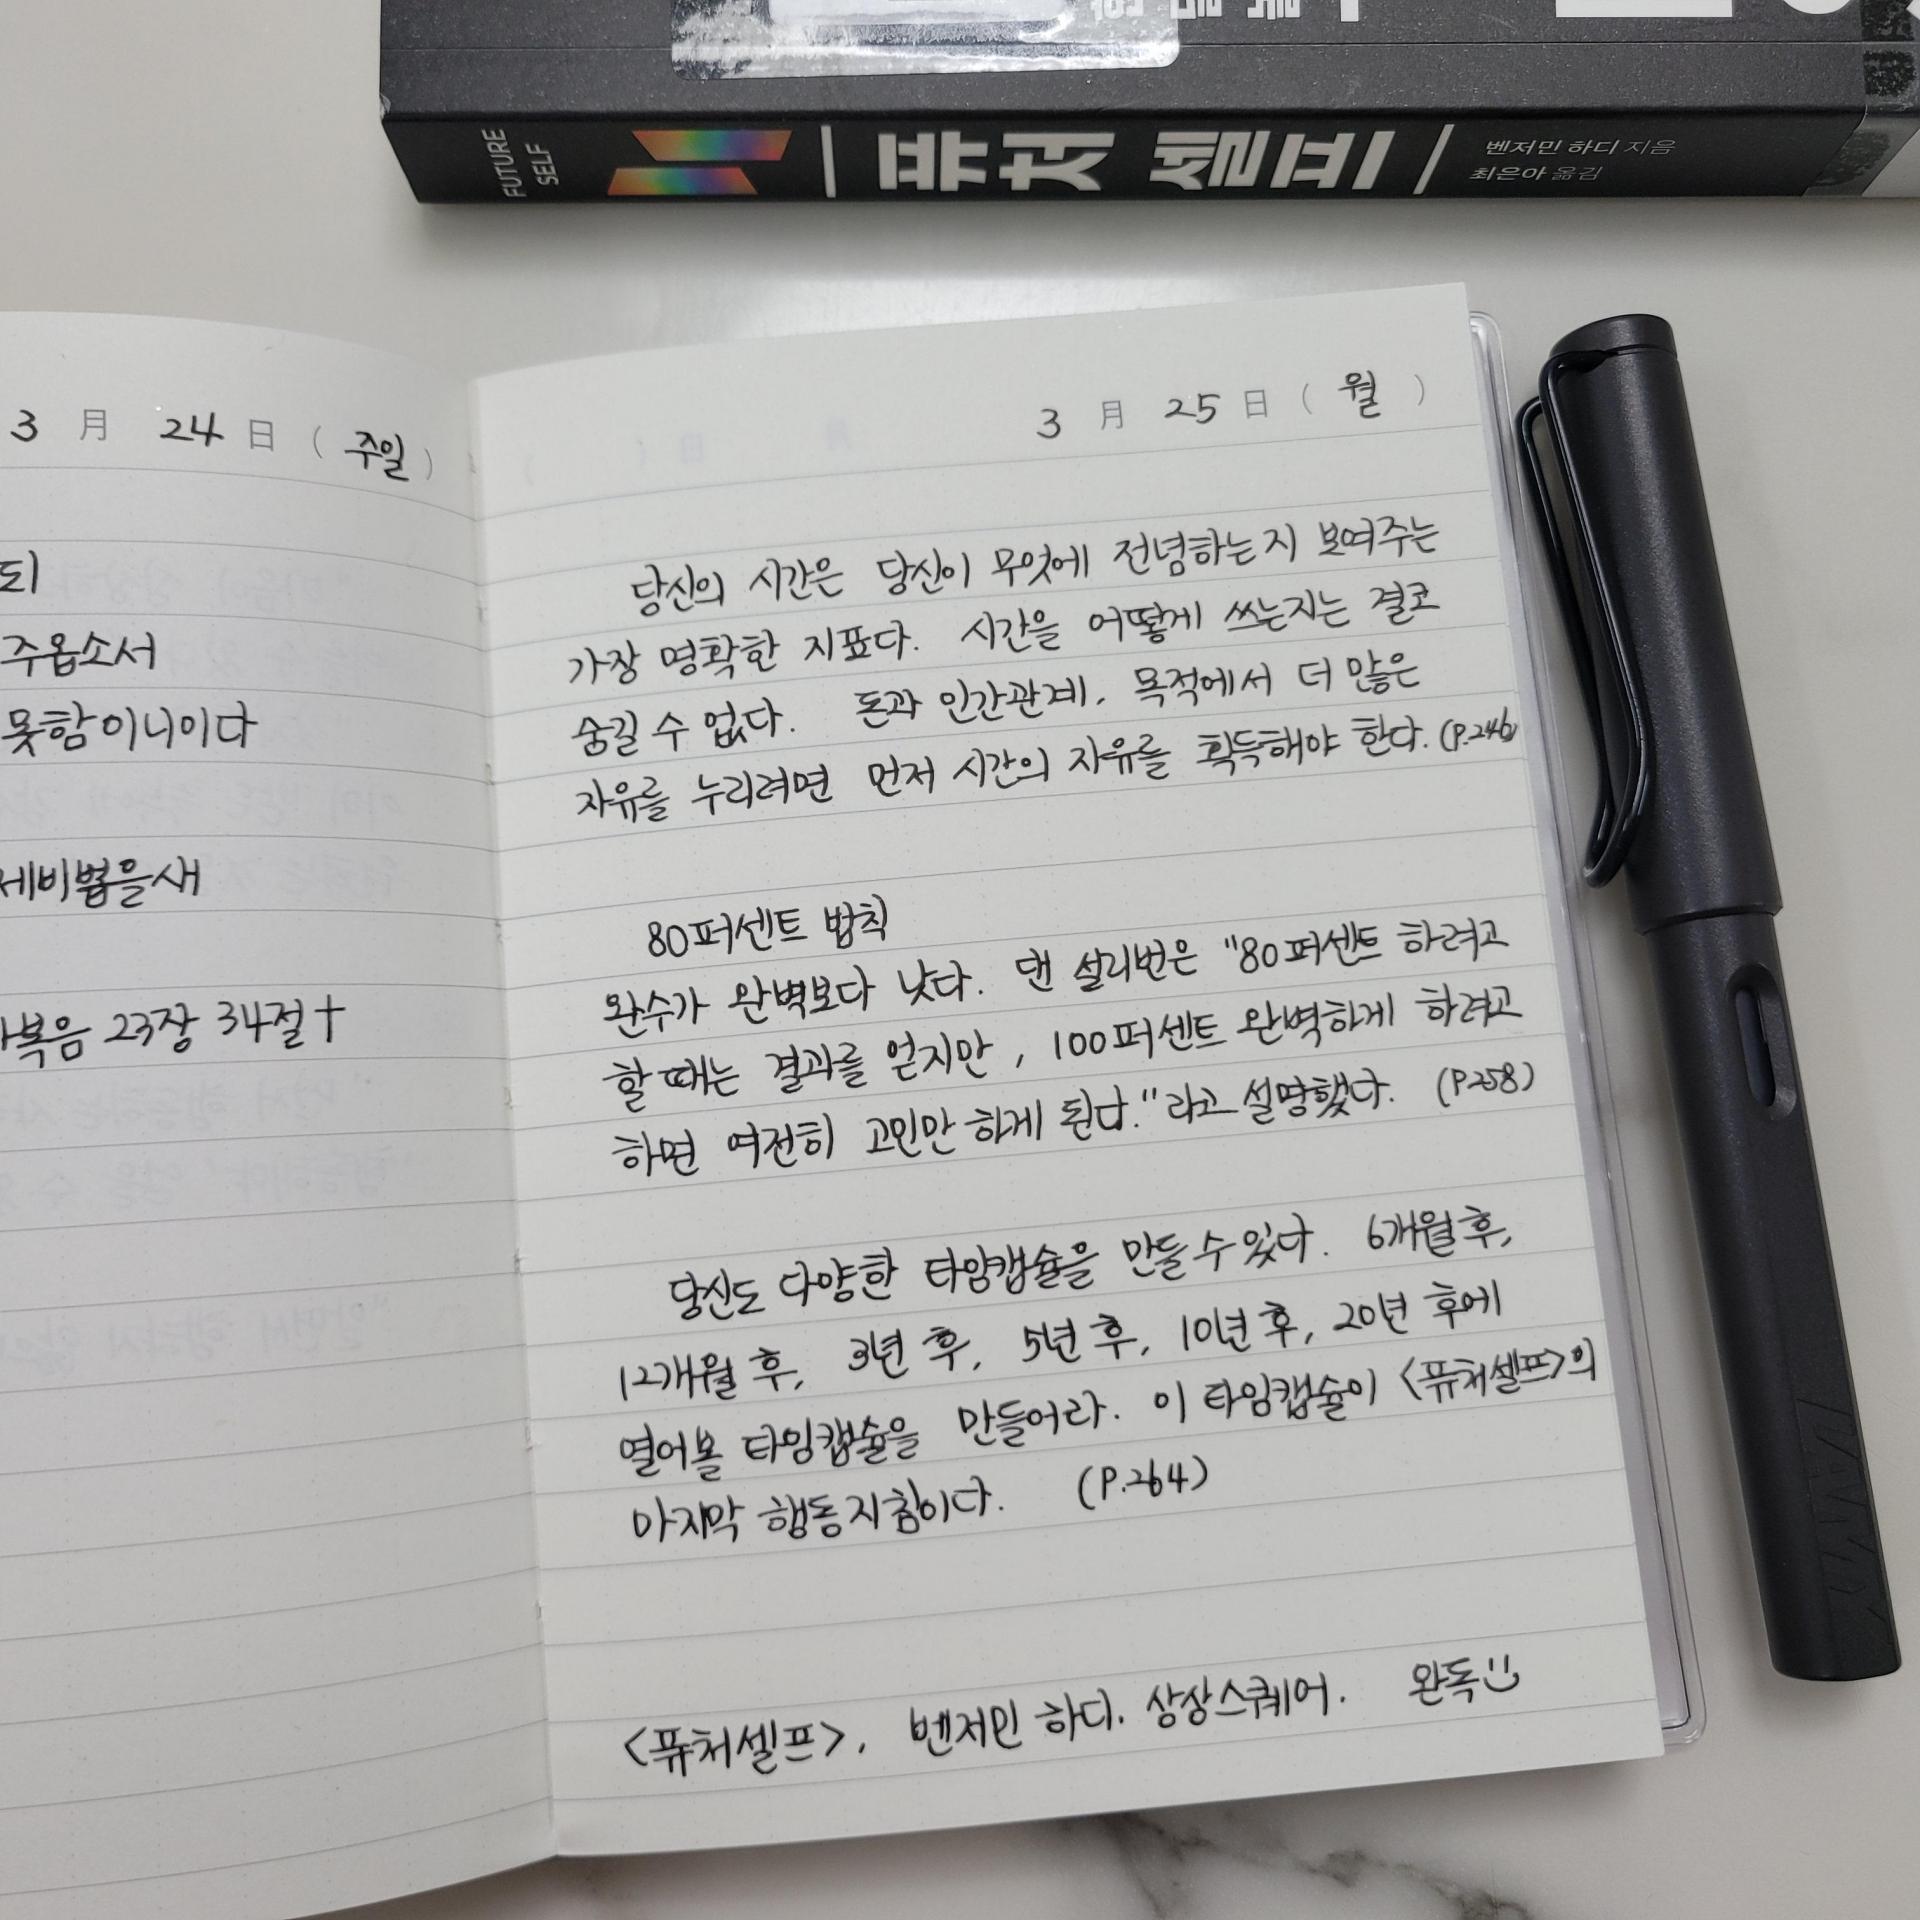 FUTURE
SELF
퓨처 셀프
벤저민 하디 지음
최은아 옮김
3 月 24 日 ( 주일 )
주옵소서
못함이니이다
복음 23장 34절
3 月 25 日 ( 월 )
당신의 시간은 당신이 무엇에 전념하는지 보여주는
가장 명확한 지표다. 시간을 어떻게 쓰는지는 결코
숨길 수 없다. 돈과 인간관계, 목적에서 더 많은
자유를 누리려면 먼저 시간의 자유를 획득해야 한다. (P.246)
80퍼센트 법칙
완수가 완벽보다 낫다. 댄 설리번은 "80퍼센트 하려고
할 때는 결과를 얻지만, 100퍼센트 완벽하게 하려고
하면 여전히 고민만 하게 된다."라고 설명했다. (P.258)
당신도 다양한 타임캡슐을 만들 수 있다. 6개월 후,
12개월 후, 3년 후, 5년 후, 10년 후, 20년 후에
열어볼 타임캡슐을 만들어라. 이 타임캡슐이 <퓨처셀프>의
마지막 행동지침이다. (P.264)
<퓨처셀프>, 벤저민 하디. 상상스퀘어. 완독
LAMY